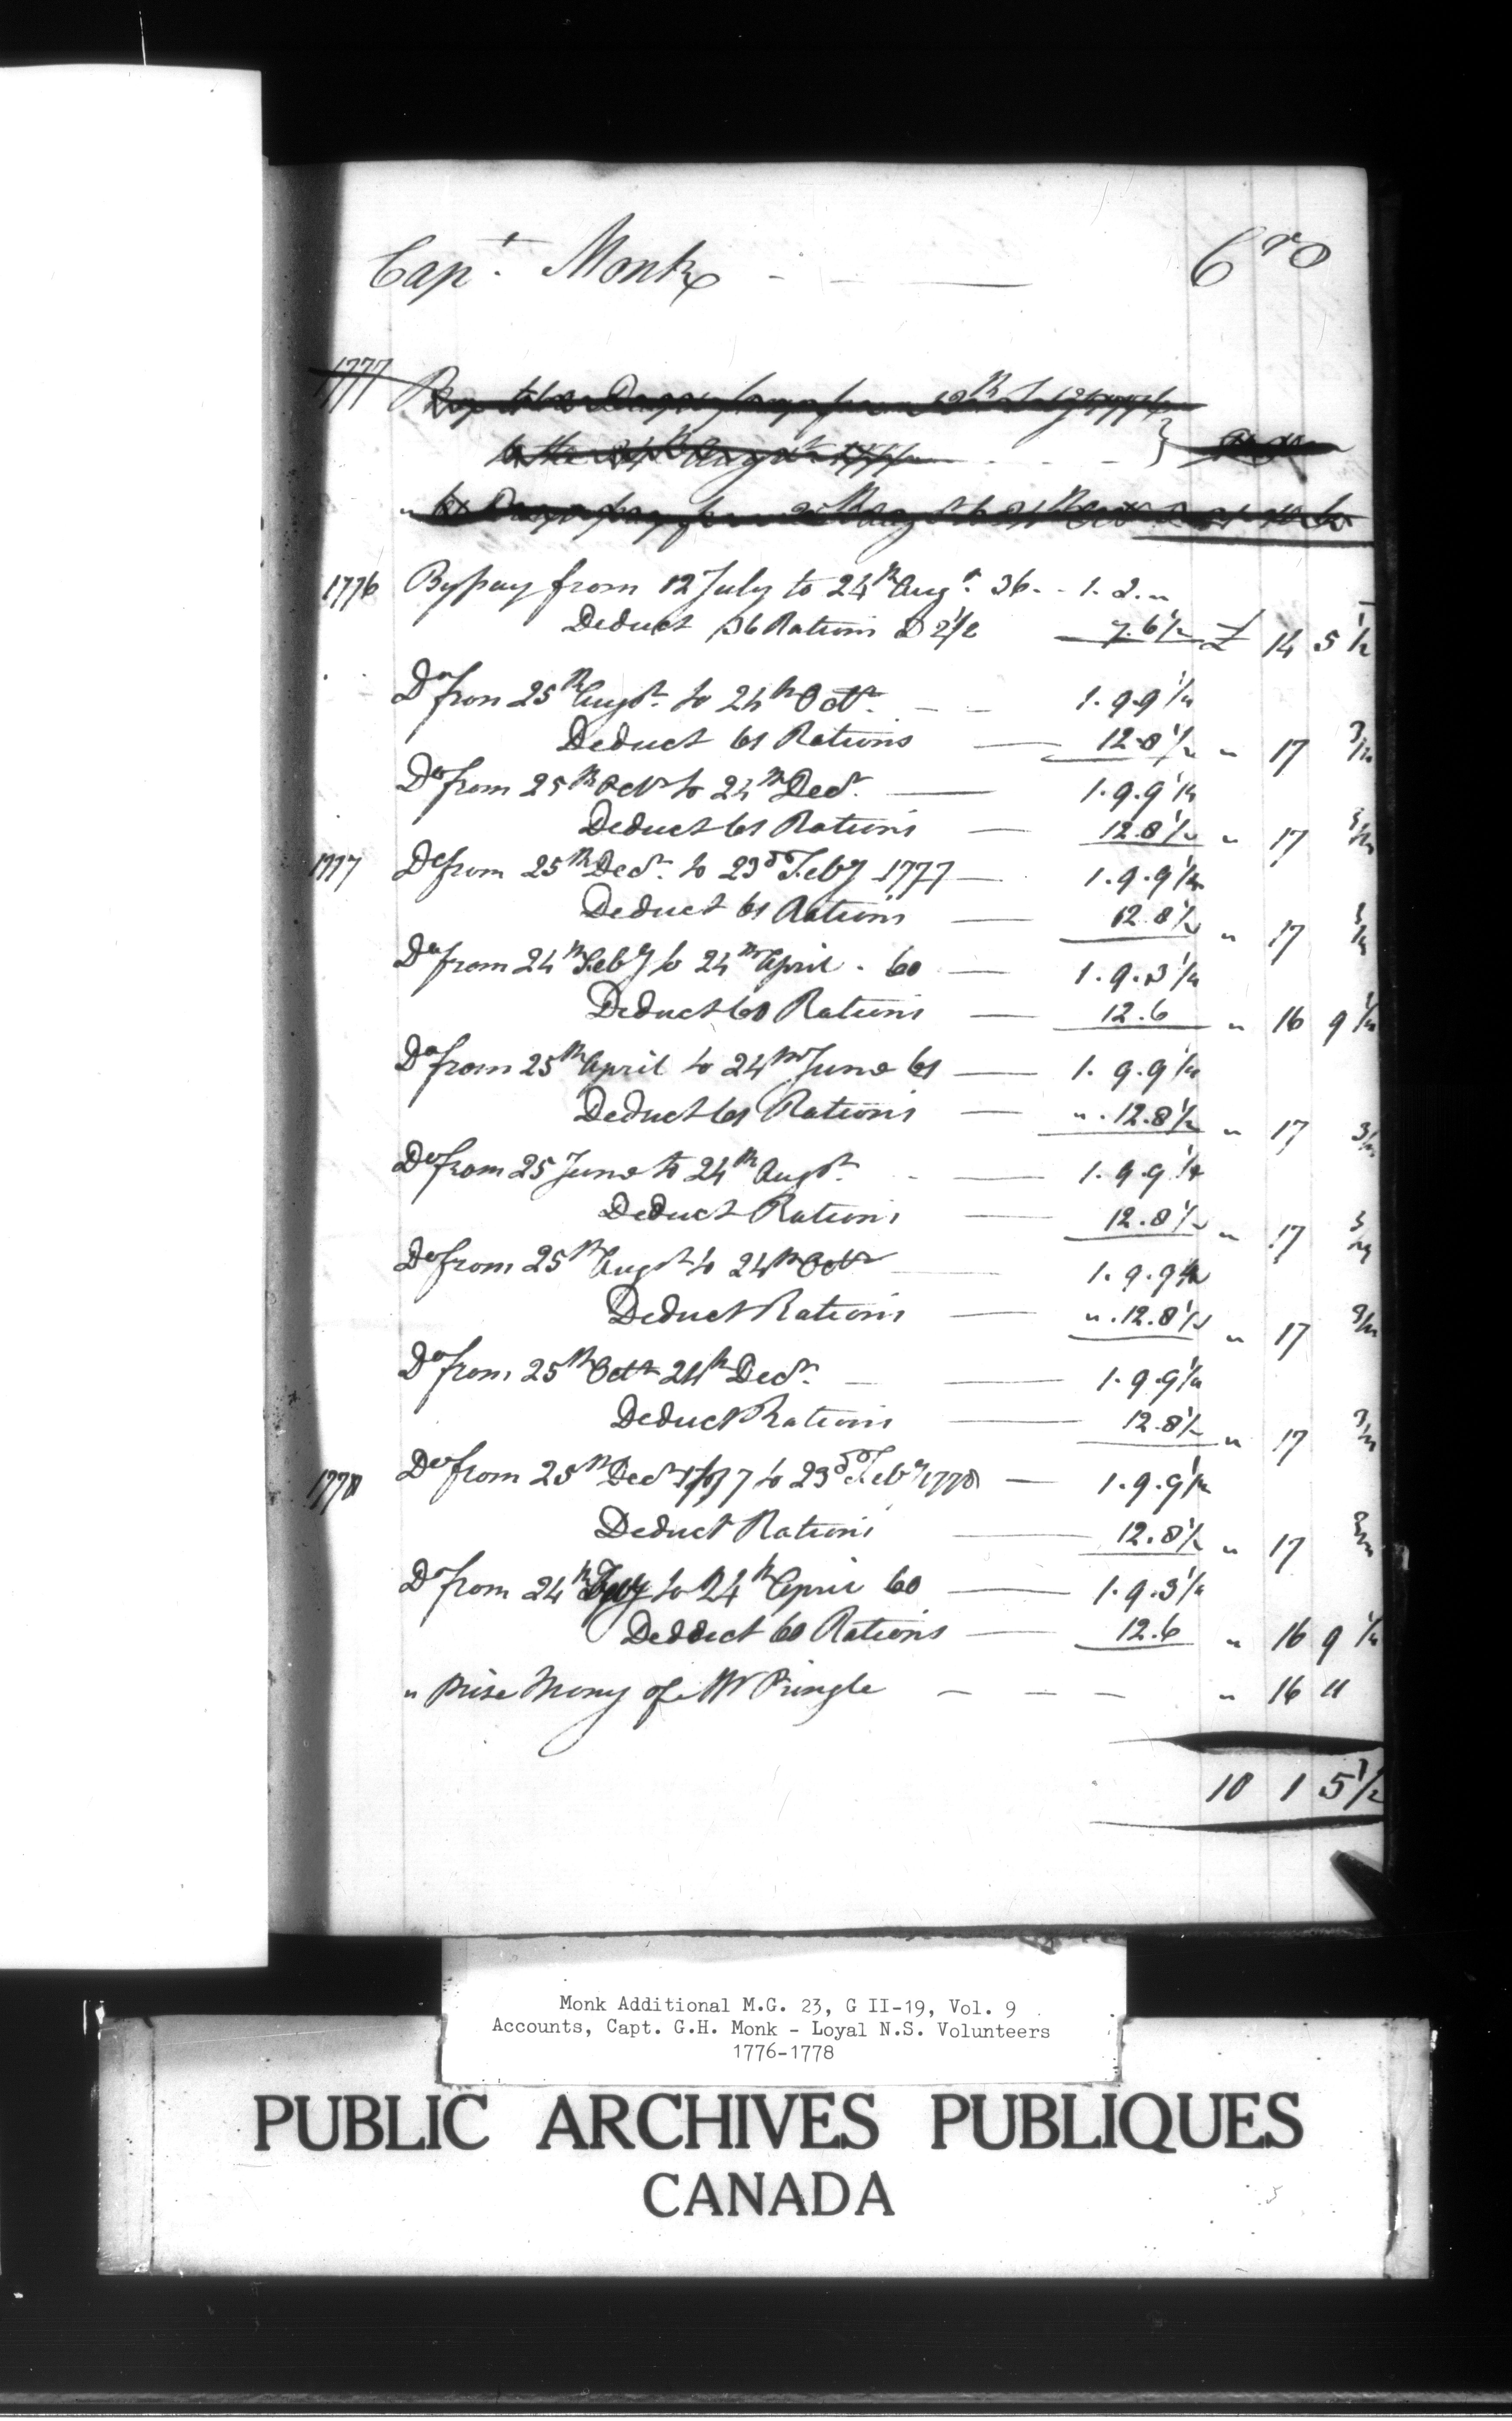 Capt. Monk - - — Cro
1777
1776 By pay from 12 July to 24th Augt. 36 - - 1. 2. "
Deduct 36 Rations D 2 1/2 7. 6 1/2 £ 14 5 1/2
Do from 25th Augst. to 24th Octr. - - 1. 9. 9 1/4
Deduct 61 Rations — 12. 8 1/2 " 17 3/4
Do from 25th Octr to 24th Decr. — 1. 9. 9 1/4
Deduct 61 Rations — 12. 8 1/2 " 17 3/4
1777 Do from 25th Decr. to 23d Feby 1777 — 1. 9. 9 1/4
Deduct 61 Rations — 12. 8 1/2 " 17 3/4
Do from 24th Feby to 24th April - 60 — 1. 9. 3 1/4
Deduct 60 Rations — 12. 6 " 16 9 1/4
Do from 25th April to 24th June 61 — 1. 9. 9 1/4
Deduct 61 Rations — ". 12. 8 1/2 " 17 3/4
Do from 25 June to 24th Augst. - — 1. 9. 9 1/4
Deduct Rations — 12. 8 1/2 " 17 3/4
Do from 25th Augst to 24th Octr — 1. 9. 9 1/4
Deduct Rations — ". 12. 8 1/2 " 17 3/4
Do from 25th Octr 24th Decr. — — 1. 9. 9 1/4
Deduct Rations — 12. 8 1/2 " 17 3/4
1778 Do from 25th Decr 1777 to 23d Feby 1778 — 1. 9. 9 1/4
Deduct Rations — 12. 8 1/2 " 17 3/4
Do from 24th Feby to 24th April 60 — 1. 9. 3 1/4
Deduct 60 Rations — 12. 6 " 16 9 1/4
" Prise Mony of Mr Pringle - - - " 16 "
10 1 5 1/2
Monk Additional M.G. 23, G II-19, Vol. 9
Accounts, Capt. G.H. Monk - Loyal N.S. Volunteers
1776-1778
PUBLIC ARCHIVES PUBLIQUES
CANADA